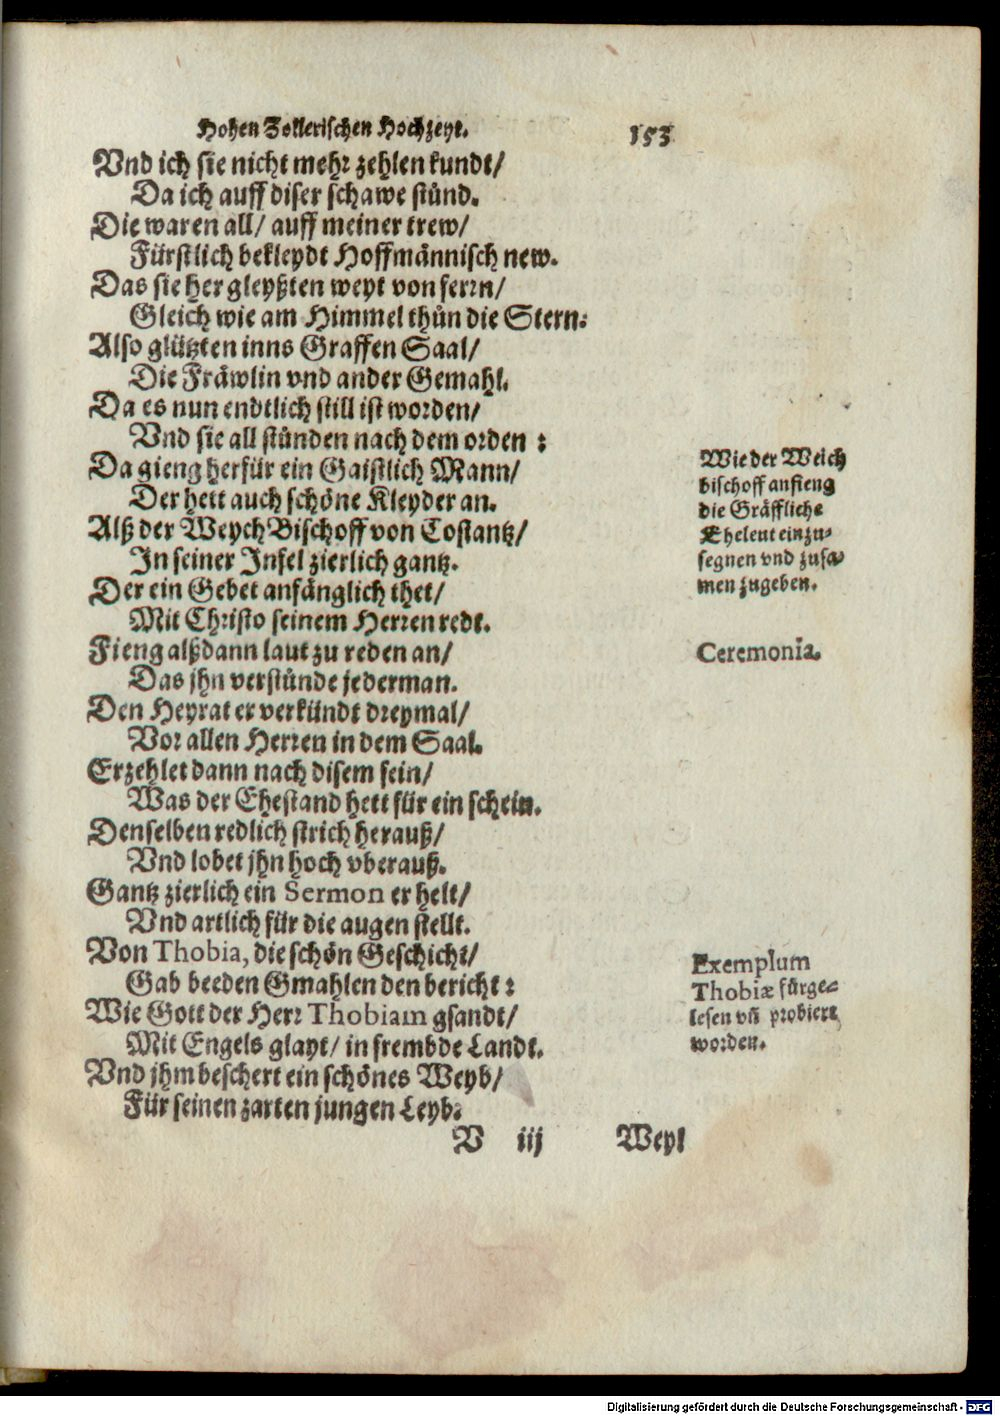 Hohen Zollerischen Hochzeyt. 153
Vnd ich sie nicht mehr zehlen kundt/
Da ich auff diser schawe stünd.
Die waren all/ auff meiner trew/
Fürstlich bekleydt Hoffmännisch new.
Das sie her gleyßten weyt von ferrn/
Gleich wie am Himmel thůn die Stern:
Also glützten inns Graffen Saal/
Die Fräwlin vnd ander Gemahl.
Da es nun endtlich still ist worden/
Vnd sie all stünden nach dem orden :
Da gieng herfür ein Gaistlich Mann/
Der hett auch schöne Kleyder an.
Alß der WeychBischoff von Costantz/
In seiner Infel zierlich gantz.
Der ein Gebet anfänglich thet/
Mit Christo seinem Herren redt.
Fieng alßdann laut zu reden an/
Das jhn verstünde jederman.
Den Heyrat er verkündt dreymal/
Vor allen Herren in dem Saal.
Erzehlet dann nach disem fein/
Was der Ehestand hett für ein schein.
Denselben redlich strich herauß/
Vnd lobet jhn hoch vberauß.
Gantz zierlich ein Sermon er helt/
Vnd artlich für die augen stellt.
Von Thobia, die schön Geschicht/
Gab beeden Gmahlen den bericht :
Wie Gott der Herr Thobiam gsandt/
Mit Engels glayt/ in frembde Landt.
Vnd jhm beschert ein schönes Weyb/
Für seinen zarten jungen Leyb.
V iij Weyl
Wie der Weich
bischoff anfieng
die Gräffliche
Eheleut einzu-
segnen vnd zusa-
men zugeben.
Ceremonia.
Exemplum
Thobiæ fürge-
lesen vñ probiert
worden.
Digitalisierung gefördert durch die Deutsche Forschungsgemeinschaft - DFG